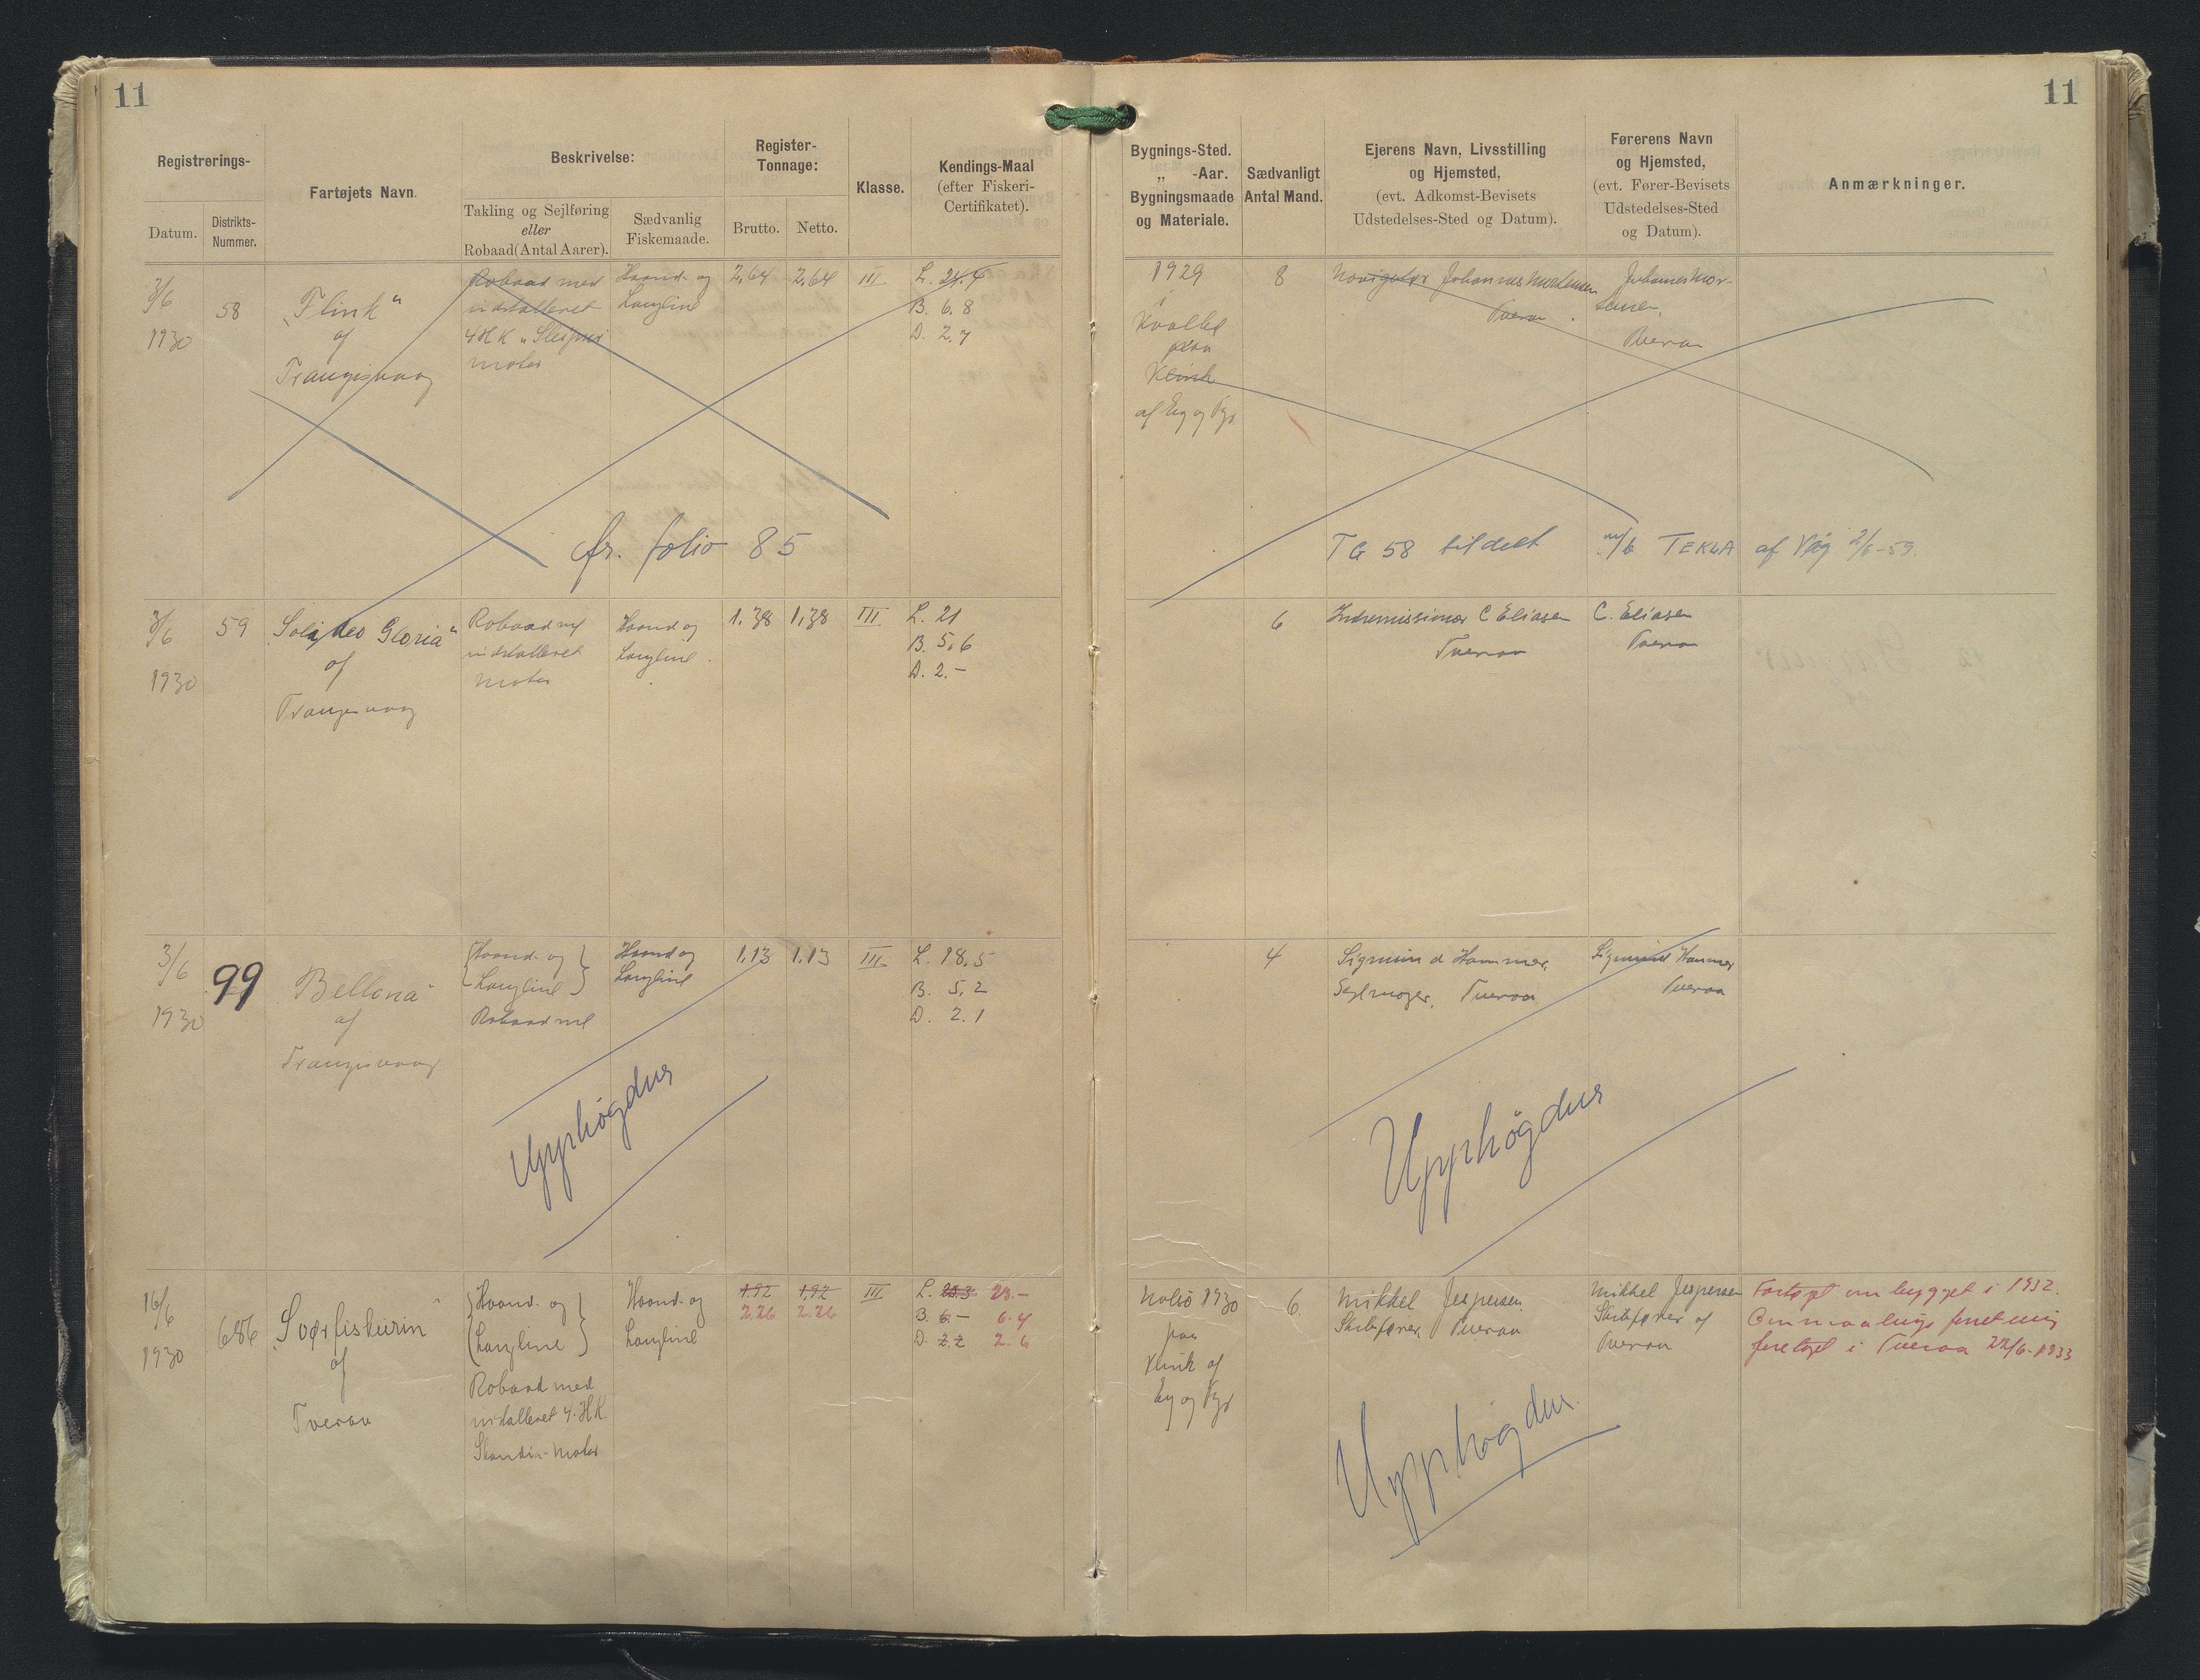 11
11
Registrerings-
Datum.
Distrikts-
Nummer.
Fartøjets Navn.
Beskrivelse:
Takling og Sejlføring
eller
Robaad (Antal Aarer).
Sædvanlig
Fiskemaade.
Register-
Tonnage:
Brutto.
Netto.
Klasse.
Kendings-Maal
(efter Fiskeri-
Certifikatet).
Bygnings-Sted.
„ -Aar.
Bygningsmaade
og Materiale.
Sædvanligt
Antal Mand.
Ejerens Navn, Livsstilling
og Hjemsted,
(evt. Adkomst-Bevisets
Udstedelses-Sted og Datum).
Førerens Navn
og Hjemsted,
(evt. Fører-Bevisets
Udstedelses-Sted
og Datum).
Anmærkninger.
3/6
1930
58
„Flink“
af
Trangisvaag
Robaad med
indstalleret
4 HK „Sleipner
motor
Haand- og
Langline
2,64
2,64
III
L. 24.4
B. 6.8
D. 2.7
1929
i
Kvalbø
paa
Klink
af Eg og Fyr
8
Navigatør Johannes Mortensen
Tveraa
Johannes Mor-
tensen,
Tveraa
fr. folio 85
TG 58 tildelt m/b TEKLA af Våg 2/6-59.
3/6
1930
59
Soli Deo Gloria“
af
Trangisvaag
Robaad med
indstalleret
motor
Haand og
Langline.
1,38
1,38
III
L. 21
B. 5,6
D. 2.-
6
Indremissionær C Eliasen
Tveraa
C. Eliasen
Tveraa
3/6
1930
99
„Bellona“
af
Trangisvaag
Haand- og
Langline
Robaad med
Haand og
Langline
1,13
1.13
III
L. 18.5
B. 5,2
D. 2.1
4
Sigmund Hammer,
Tveraa
Sigmund Hammer
Tveraa
Upphøgdur
Upphøgdur
16/6
1930
686
„Sværfiskurin“
af
Tveraa
Haand- og
Langline
Robaad med
indstalleret 4-HK.
Skandia-motor
Haand- og
Langline
1.92
2.26
1,92
2.26
III
L. 23.3 23.-
B. 6.- 6.4
D. 2.2 2.6
Nolsø 1930
paa
Klink af
Eg og Fyr
6
Mikkel Jespersen
Skibsfører, Tveraa
Mikkel Jespersen
Skibsfører af
Tveraa
Fartøjet om bygget i 1932.
Ommaalings forretning
foretaget i Tveraa 22/6-1933
Upphøgdur.